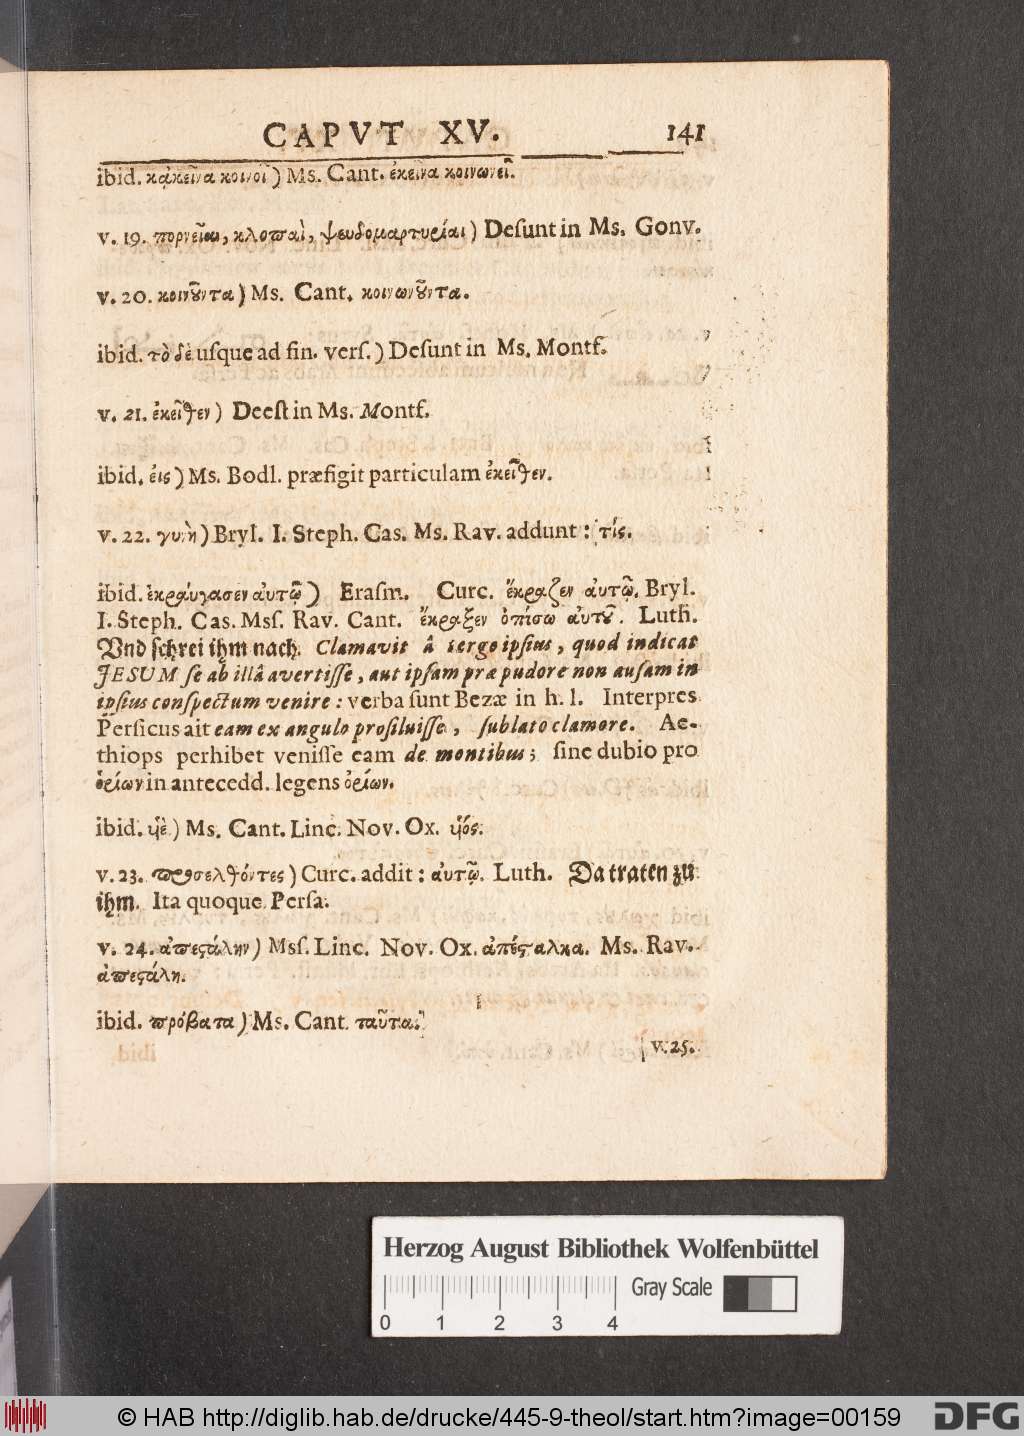 CAPVT XV. 141
ibid. κᾀκεῖνα κοινοῖ) Ms. Cant. ἐκεῖνα κοινωνεῖ.
v. 19. πορνεῖαι, κλοπαὶ, ψευδομαρτυρίαι) Deſunt in Ms. Gonv.
v. 20. κοινοῦντα) Ms. Cant. κοινωνοῦντα.
ibid. τὸ δὲ uſque ad fin. verſ.) Deſunt in Ms. Montf.
v. 21. ἐκεῖθεν) Deeſt in Ms. Montf.
ibid. εἰς) Ms. Bodl. præfigit particulam ἐκεῖθεν.
v. 22. γυνὴ) Bryl. I. Steph. Caſ. Ms. Rav. addunt: τίς.
ibid. ἐκραύγασεν αὐτῷ) Eraſm. Curc. ἔκραζεν αὐτῷ. Bryl.
I. Steph. Caſ. Mſſ. Rav. Cant. ἔκραξεν ὀπίσω αὐτοῦ. Luth.
Und ſchrei ihm nach. Clamavit â tergo ipſius, quod indicat
JESUM ſe ab illâ avertiſſe, aut ipſam præ pudore non auſam in
ipſius conſpectum venire: verba ſunt Bezæ in h. l. Interpres
Perſicus ait eam ex angulo proſiluiſſe, ſublato clamore. Ae-
thiops perhibet veniſſe eam de montibus; ſine dubio pro
ὁρίων in antecedd. legens ὀρίων.
ibid. υἱὲ) Ms. Cant. Linc. Nov. Ox. υἱός.
v. 23. προσελθόντες) Curc. addit: αὐτῷ. Luth. Da traten zu
ihm. Ita quoque Perſa.
v. 24. ἀπεστάλην) Mſſ. Linc. Nov. Ox. ἀπέσταλκα. Ms. Rav.
ἀπεστάλη.
ibid. πρόβατα) Ms. Cant. ταῦτα.
v. 25.
Herzog August Bibliothek Wolfenbüttel
Gray Scale
0 1 2 3 4
© HAB http://diglib.hab.de/drucke/445-9-theol/start.htm?image=00159
DFG